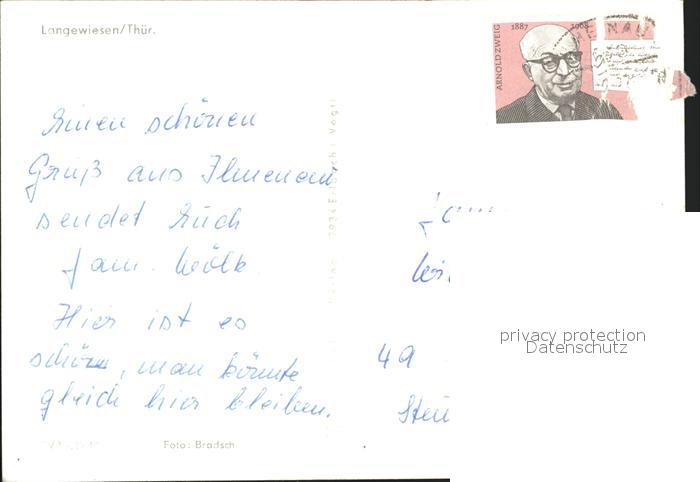 Langewiesen/Thür.
ARNOLD ZWEIG 1887 1968
Einen schönen
Gruß aus Ilmenau
sendet Euch
Fam. Wölk
Hier ist es
schön, man könnte
gleich hier bleiben.
Foto: Bradsch
Fam
49
privacy protection
Datenschutz